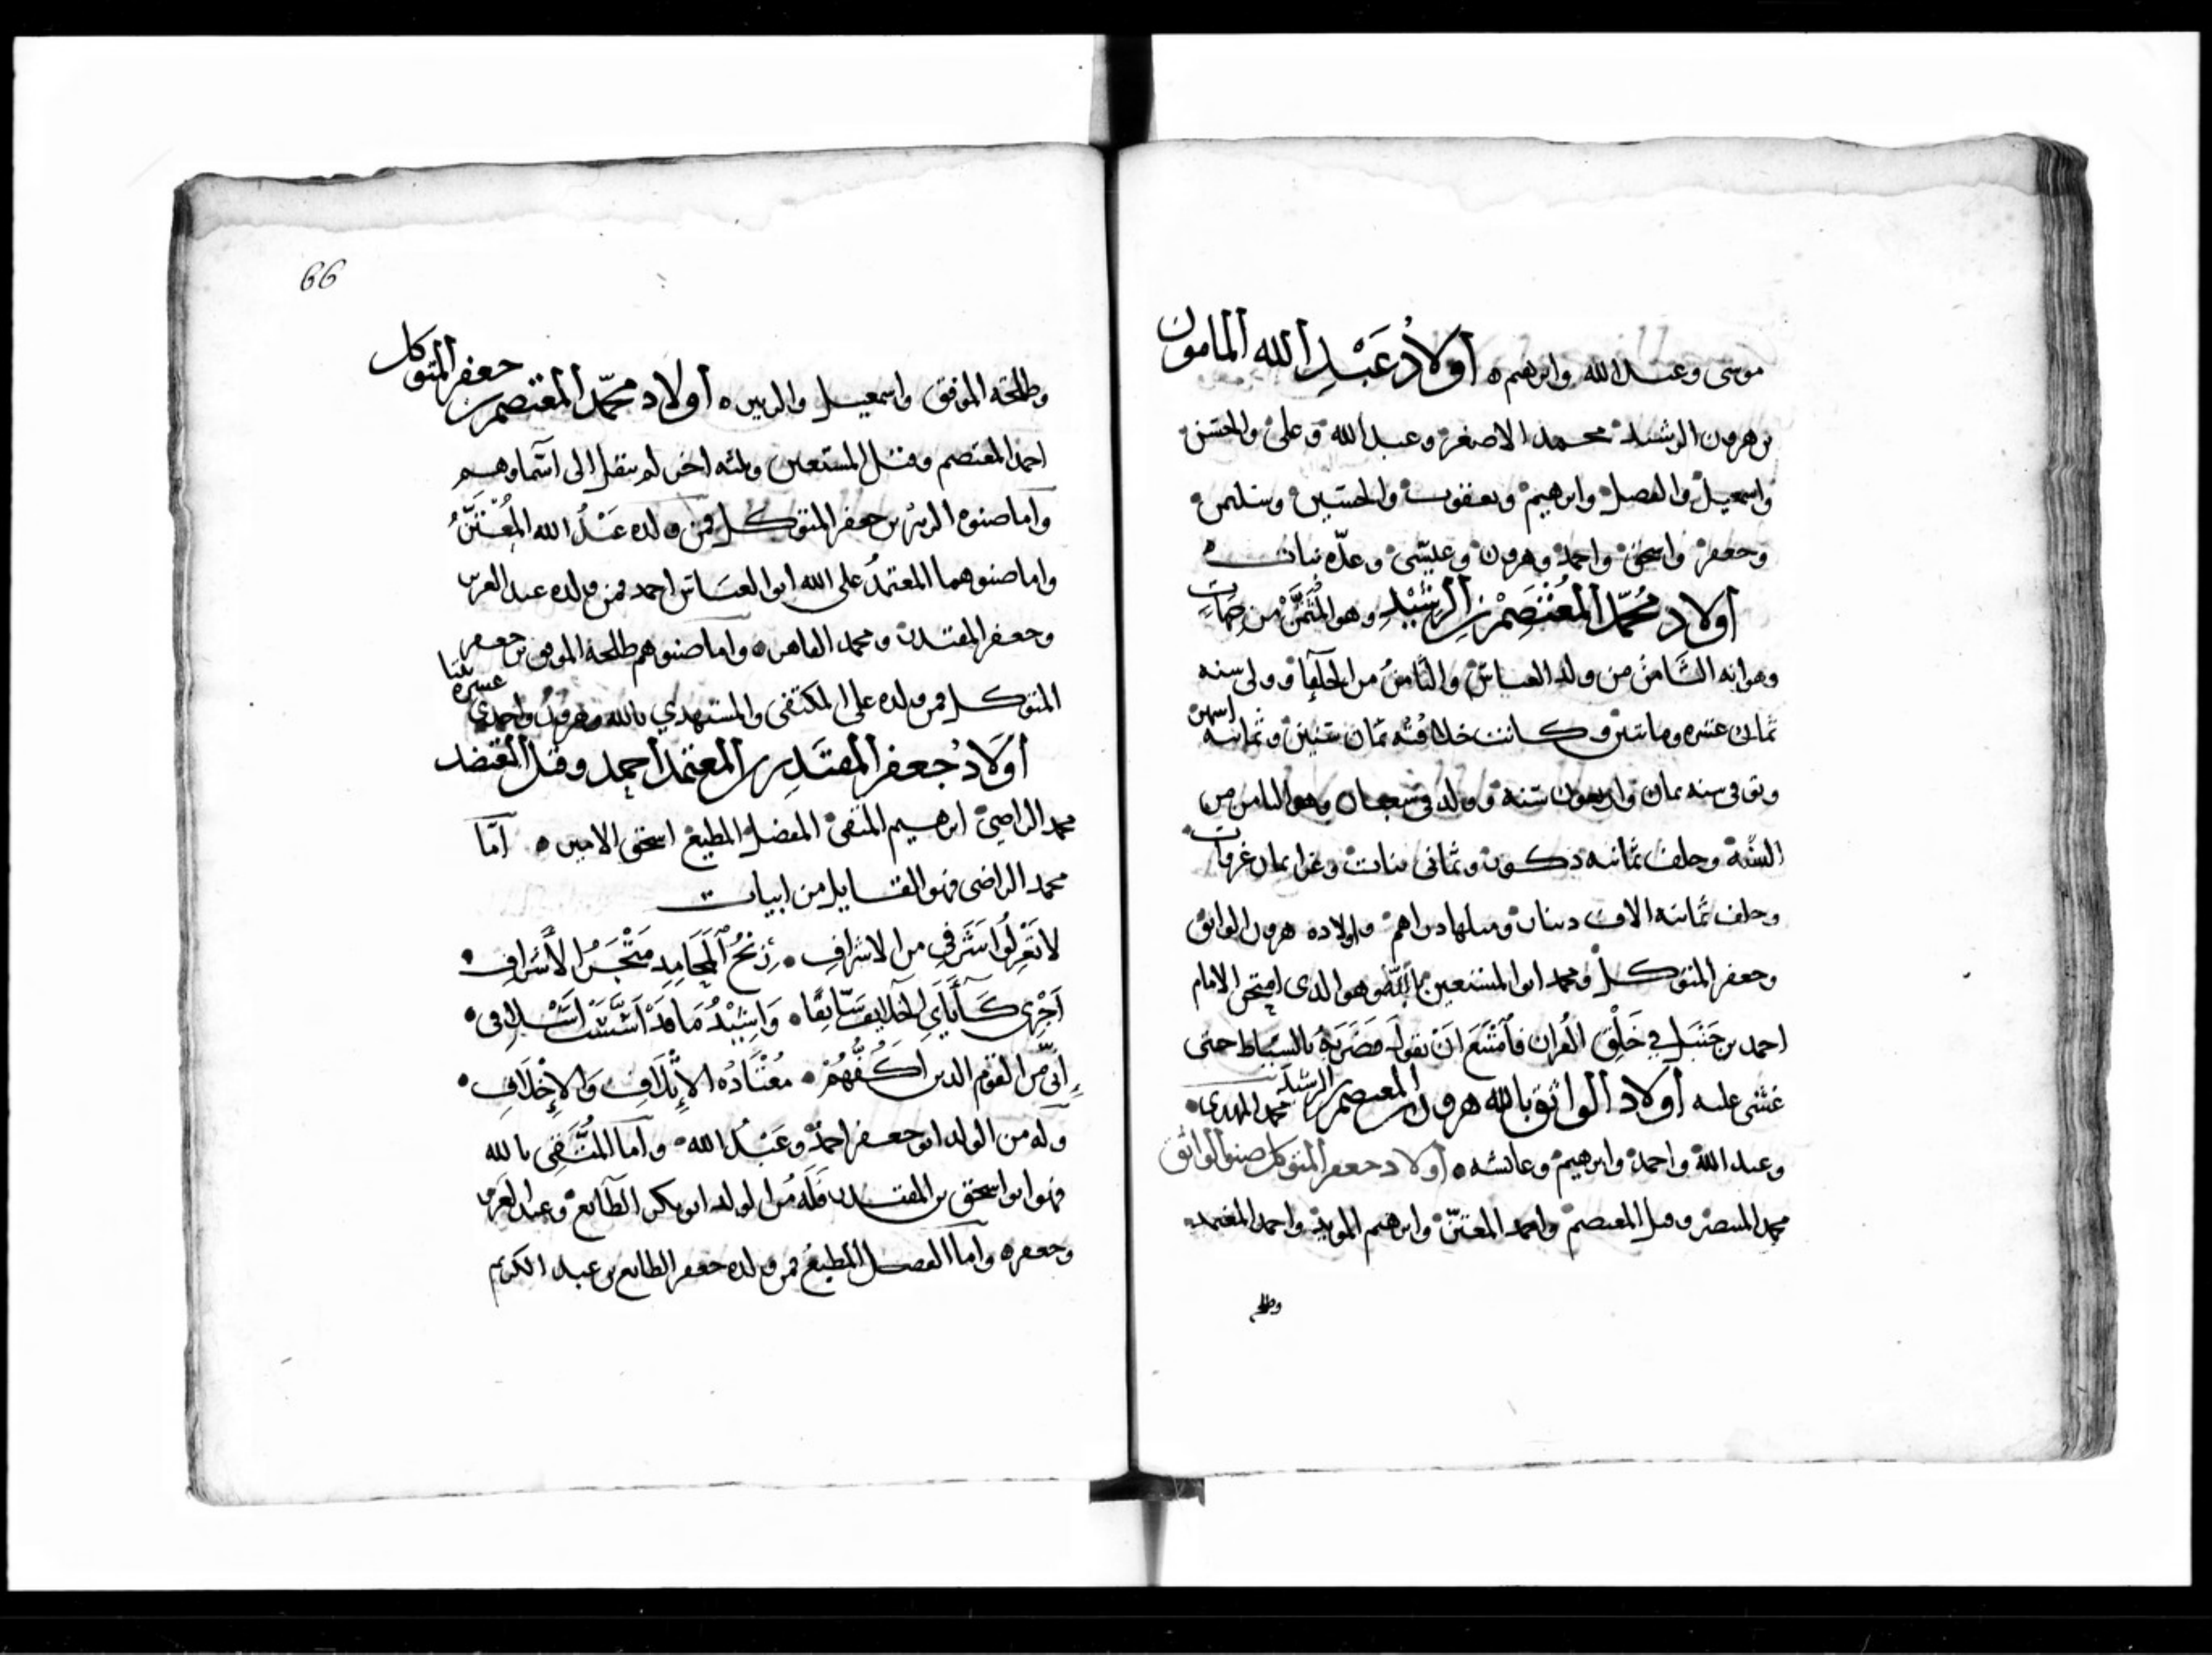 موسى وعبد الله وابرهيم ه اولاد عَبْدِ الله المامون
بن هرون الرشيد محمد الاصغر وعبد الله وعلى والحسن
واسمعيل والفضل وابرهيم ويعقوب والحسين وسليمن
وجعفر واسحق واحمد وهرون وعيسى وعدّه بنات ه
اولاد محمّد المُعْتَصِمْ بن الرشيْدِ وهو المُثَمَّنْ من جهات
وهو انه الثامن من ولد العباس والثامنُ من الخلفآ وولى سنه
ثمان عشره وماتين وكانت خلافتُه ثمان سنين وثمانيه اشهر
وتوفى سنه ثمان واربعون سنة وولد فى شعبان وهو الثامن من
السَّنة وخلف ثمانيه ذكور وثمانى بنات وغزا ثمان غزوات
وخلف ثمانيه الاف دينار ومثلها دراهم واولاده هرون الواثق
وجعفر المتوكل ومحمد ابو المستعين بالله وهو الدى امتحن الامام
احمد بن حَنْبَل فِي خَلْقِ القُران فاَمْتَنَع اَنْ يقولَ فضَرَبَهُ بالسِّياط حتى
غشى عليه اولاد الواثق بالله هرون بن المعتصم بن الرشيد محمد المهدى
وعبد الله واحمد وابرهيم وعائشه ه اولاد جعفر المتوكل صنو الواثق
محمد المنتصر وقيل المعتصم ومحمد المعتزّ وابرهيم المويد واحمد المعتمد
وطلحه
66
وطلحة الموفق واسمعيل والزبير ه اولاد محمّد المعتصم بن جعفر المتوكل
احمد المعتصم وقيل المستعين وثلثه اخر لم ينقل الى اسماوهم
واما صنوه الزبير بن جعفر المتوكل فمن ولده عَبْدُ الله المُعْتَزُّ
واما صنوهما المعتمدُ على الله ابو العبَاس احمد فمن ولده عبد العزيز
وجعفر المقتدر ومحمد القاهر ه واما صنوهم طلحة الموفق بن جعفر
المتوكل فمن ولده على المكتفى والمستهدي بالله وهرون واحدي عشره بنتا
اوَلادُ جعفر المقتَدِر بن المعتمد احمد وقيل المعتضد
محمد الراضيْ ابرهيم المتقىْ المفضل المطيع اسحق الامير ه امّا
محمد الراضى فهو القايل من ابيات
لا تَعْذِلُوا سَرَفِي من الاشرافِ رِبْحُ المَحَامِدِ مَتْجَرُ الأشرافِ
اَجْرِى كَآبَاَيِ الخلايف سَابقًا وَاشِيْدُ مَا قدْ اَسَّسَتْ اَسْلافى
إِنِّى مِن القَوْمِ الدين اكُفُّهُمْ مُعْتَادُه الإِتْلَافِ وَالإِخْلَافِ
وله من الولد ابو جعفر احمدُ وعَبْدُ الله واما المُتَّقى بالله
فهو ابو اسحق بن المقتدر فَلَه مُن الولد ابو بكر الطآئع وعبد العزيز
وجعفر ه واما الفضل المطيعُ فمن ولده جعفر الطائع بن عبد الكريم